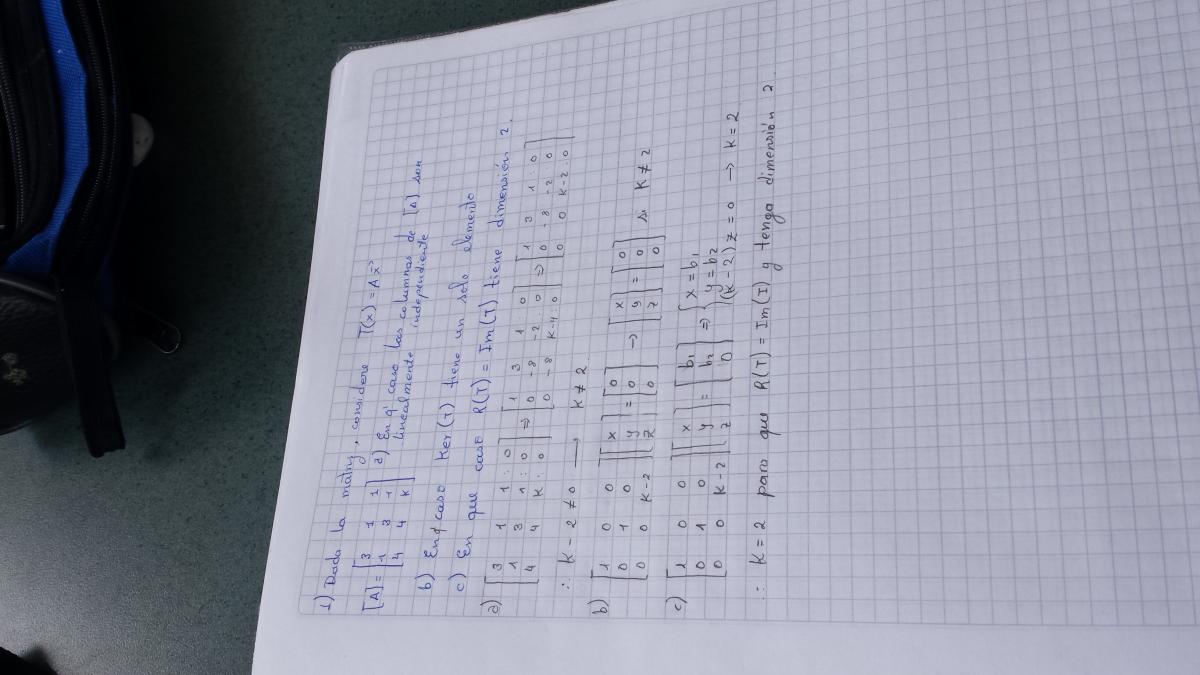 1) Dada la matriz, considere T(x) = Ax⃗
[A] = [3 1 1; 1 3 1; 4 4 k] a) En q' caso las columnas de [A] son
linealmente independiente
b) En q' caso Ker(T) tiene un solo elemento
c) En que caso R(T) = Im(T) tiene dimensión 2.
a) [3 1 1 : 0; 1 3 1 : 0; 4 4 k : 0] => [1 3 1 : 0; 0 -8 -2 : 0; 0 -8 k-4 : 0] => [1 3 1 : 0; 0 -8 -2 0; 0 0 k-2 : 0]
∴ k - 2 ≠ 0 → k ≠ 2
b) [1 0 0; 0 1 0; 0 0 k-2] [x; y; z] = [0; 0; 0] → [x; y; z] = [0; 0; 0] si k ≠ 2
c) [1 0 0; 0 1 0; 0 0 k-2] [x; y; z] = [b₁; b₂; 0] => { x = b₁
y = b₂
(k-2)z = 0 → k = 2
∴ k = 2 para que R(T) = Im(T) y tenga dimensión 2.